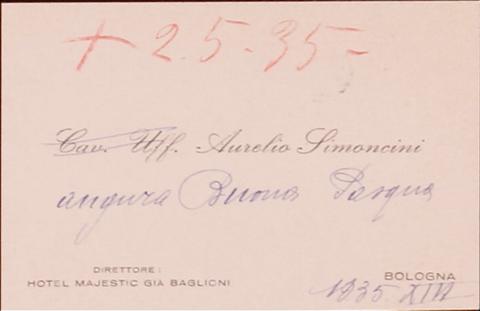 + 2.5.35-
Cav. Uff. Aurelio Simoncini
augura Buona Pasqua
DIRETTORE:
HOTEL MAJESTIC GIÀ BAGLIONI
BOLOGNA
1935. XIII